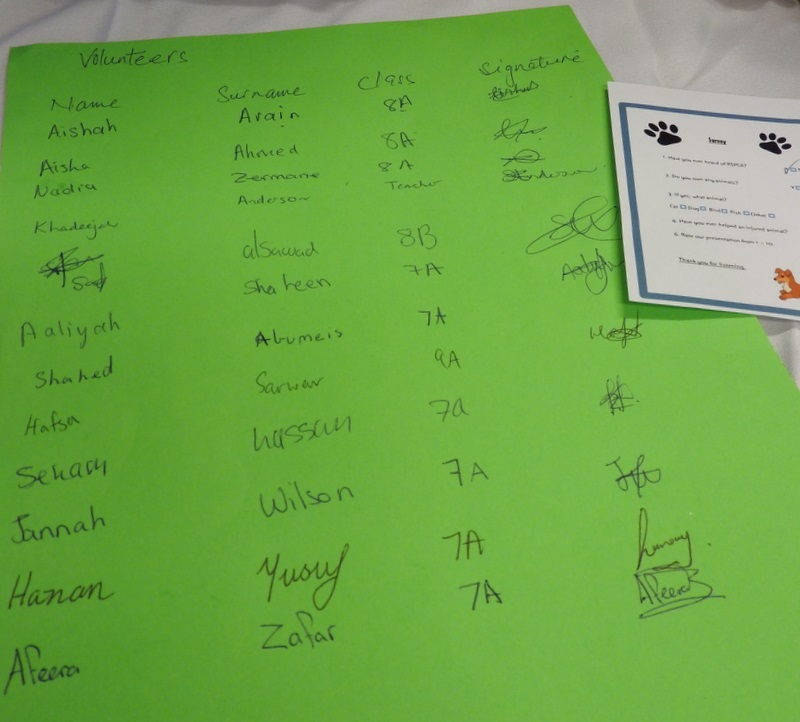 Volunteers
Name Surname Class Signature
Aishah Arain 8A
Aisha Ahmed 8A
Nadra Zermane 8A
Khadeejah Anderson Teacher
alsawad 8B
Aaliyah Shaheen 7A
Shahed Abumeis 7A
Hafsa Sarwar 9A
hassan 7a
Jannah Wilson 7A
Hanan Yusuf 7A
Afeera Zafar 7A Afeera
Survey
1. Have you ever heard of RSPCA?
2. Do you own any animals?
3. If yes, what animal?
Cat Dog Bird Fish Other
4. Have you ever helped an injured animal?
5. Rate our presentation from 1 - 10.
Thank you for listening.